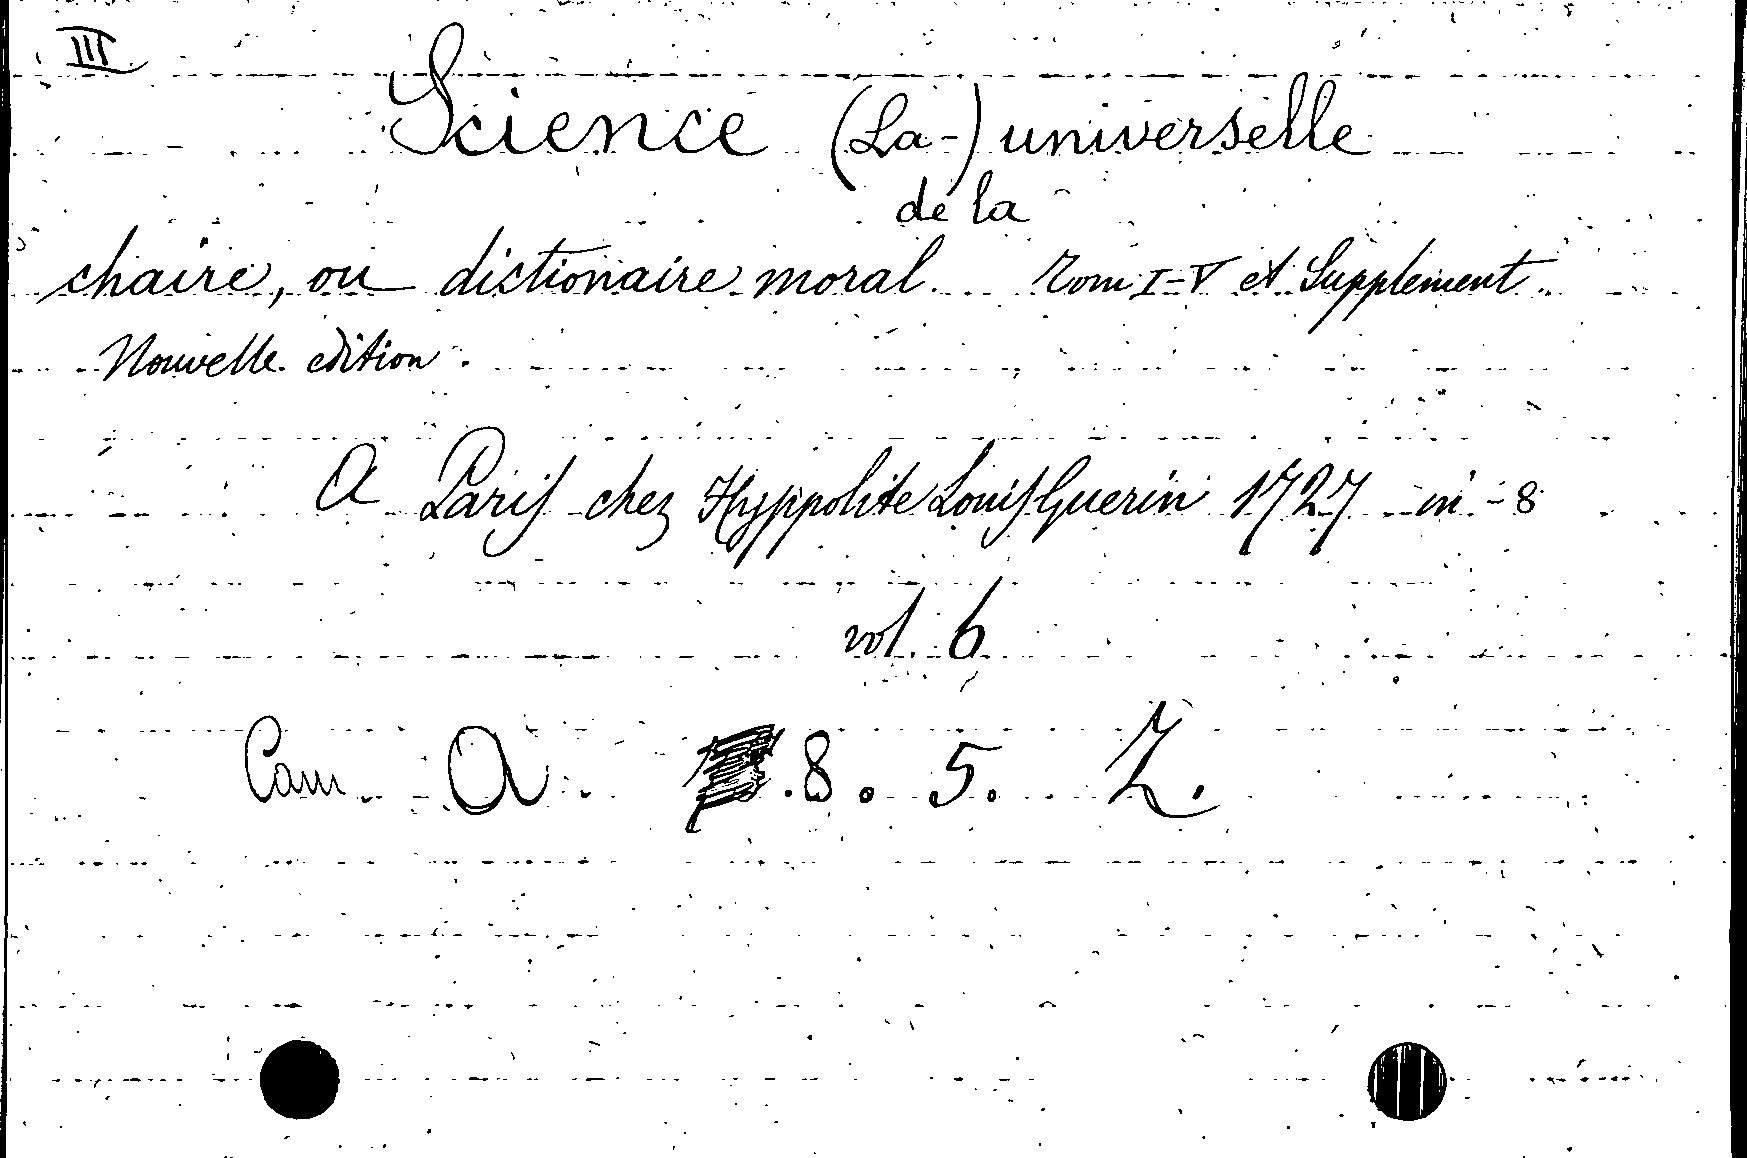 III
Science (La-) universelle
de la
chaire, ou dictionaire moral. Tom I-V et Supplement
Nouvelle edition.
A Paris chez Hyppolite Louis Guerin 1727 in-8
vol. 6
Cam. A. 8. 5. Z.